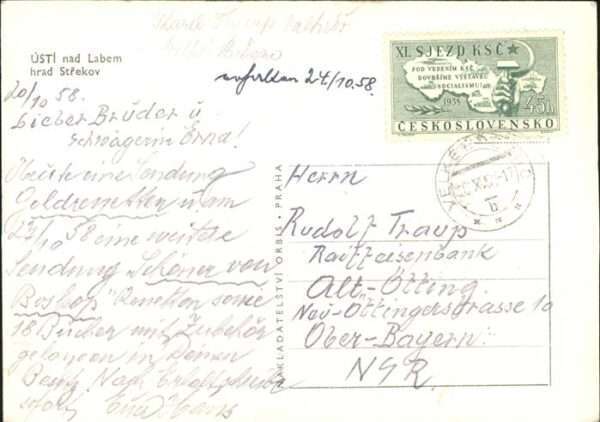 ÚSTÍ nad Labem
hrad Střekov
erhalten 24./10.58.
XI. SJEZD KSČ
POD VEDENÍM KSČ
DOVRŠÍME VÝSTAVBU
SOCIALISMU!
1958
45h
ČESKOSLOVENSKO
20/10 58.
Lieber Brüder u.
Schwägerin Erna!
eine Sendung
Goldrenetten u. am
23/10 58 eine weitere
Sendung Schöner von
Boskop" Renetten sowie
18 Bücher mit Zubehör
gelangen in Deinen
Besitz. Nach
sofort Hans
NAKLADATELSTVÍ ORBIS · PRAHA
Herrn
Rudolf Traup
Raiffeisenbank
Alt-Ötting.
Neu-Öttingerstrasse 10
Ober-Bayern
NSR.